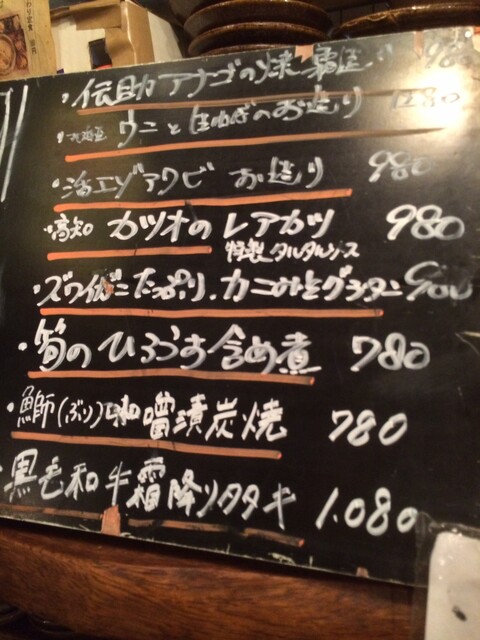 ・伝助アナゴの焼霜造り 980
ウニと生ゆばのお造り 1280
・活エゾアワビ お造り 980
・高知 カツオのレアカツ 980
特製タルタルソース
・ズワイガニたっぷり、カニみそグラタン 980
・筍のひろうす含め煮 780
・鰤(ぶり)味噌漬炭焼 780
黒毛和牛霜降りタタキ 1.080